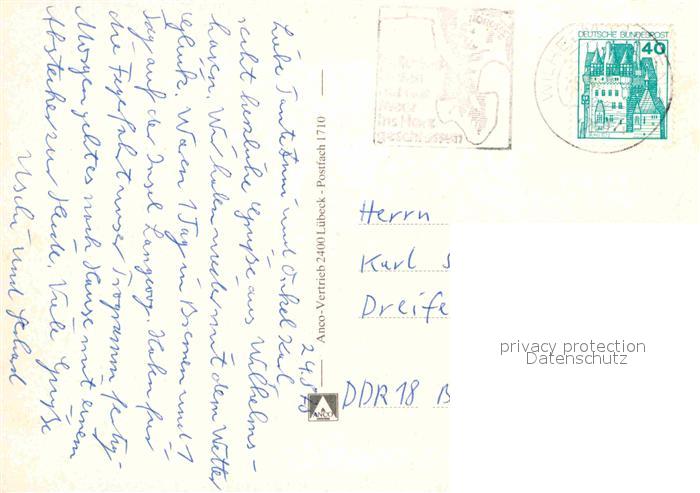 24.8.78
Liebe Tante Anni und Onkel Karl,
recht herzliche Grüße aus Wilhelms-
haven. Wir haben wieder mit dem Wetter
Glück. Waren 1 Tag in Bremen und 1
Tag auf der Insel Langeoog. Hahn für
die Tagesfahrt unser Programm fertig.
Morgen geht es nach Hause mit einem
Abstecher zur Heide. Viele Grüße
Uschi und
Anco-Vertrieb 2400 Lübeck - Postfach 1710
ANCO
ins Herz
geschlossen
WILHE
DEUTSCHE BUNDESPOST
40
Herrn
Karl
Dreife
DDR 18 B
privacy protection
Datenschutz